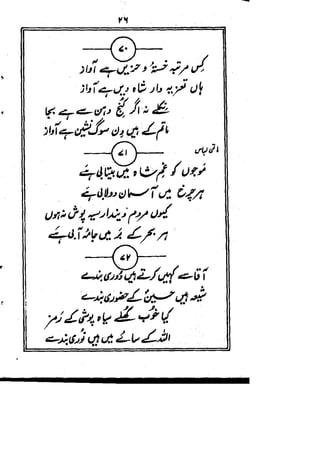 ۲۶
۷۰
کس مرتبہ خستہ و حزیں ہے آواز
ہاں تعزیہ دار شاہ دیں ہے آواز
نکلے نہ اگر کنج دہن سے ہے بجا
ماتم کے ہیں دن سوگ نشیں ہے آواز
۷۱
ماتمی لباس
موجوں کو غم شاہ میں بیتابی ہے
ہر چرخ میں آسمان دولابی ہے
کیوں مردم دیندار سیہ پوش نہ ہوں
ہر بحر کے بر میں جامۂ آبی ہے
۷۲
آقا سے کہیں کرتے ہیں دوری بندے
شیعہ ہیں حسینؑ کے حضوری بندے
کیا خوب کھلے سیاہ پوشی کے رمز
اللہ کے سائے میں ہیں نوری بندے